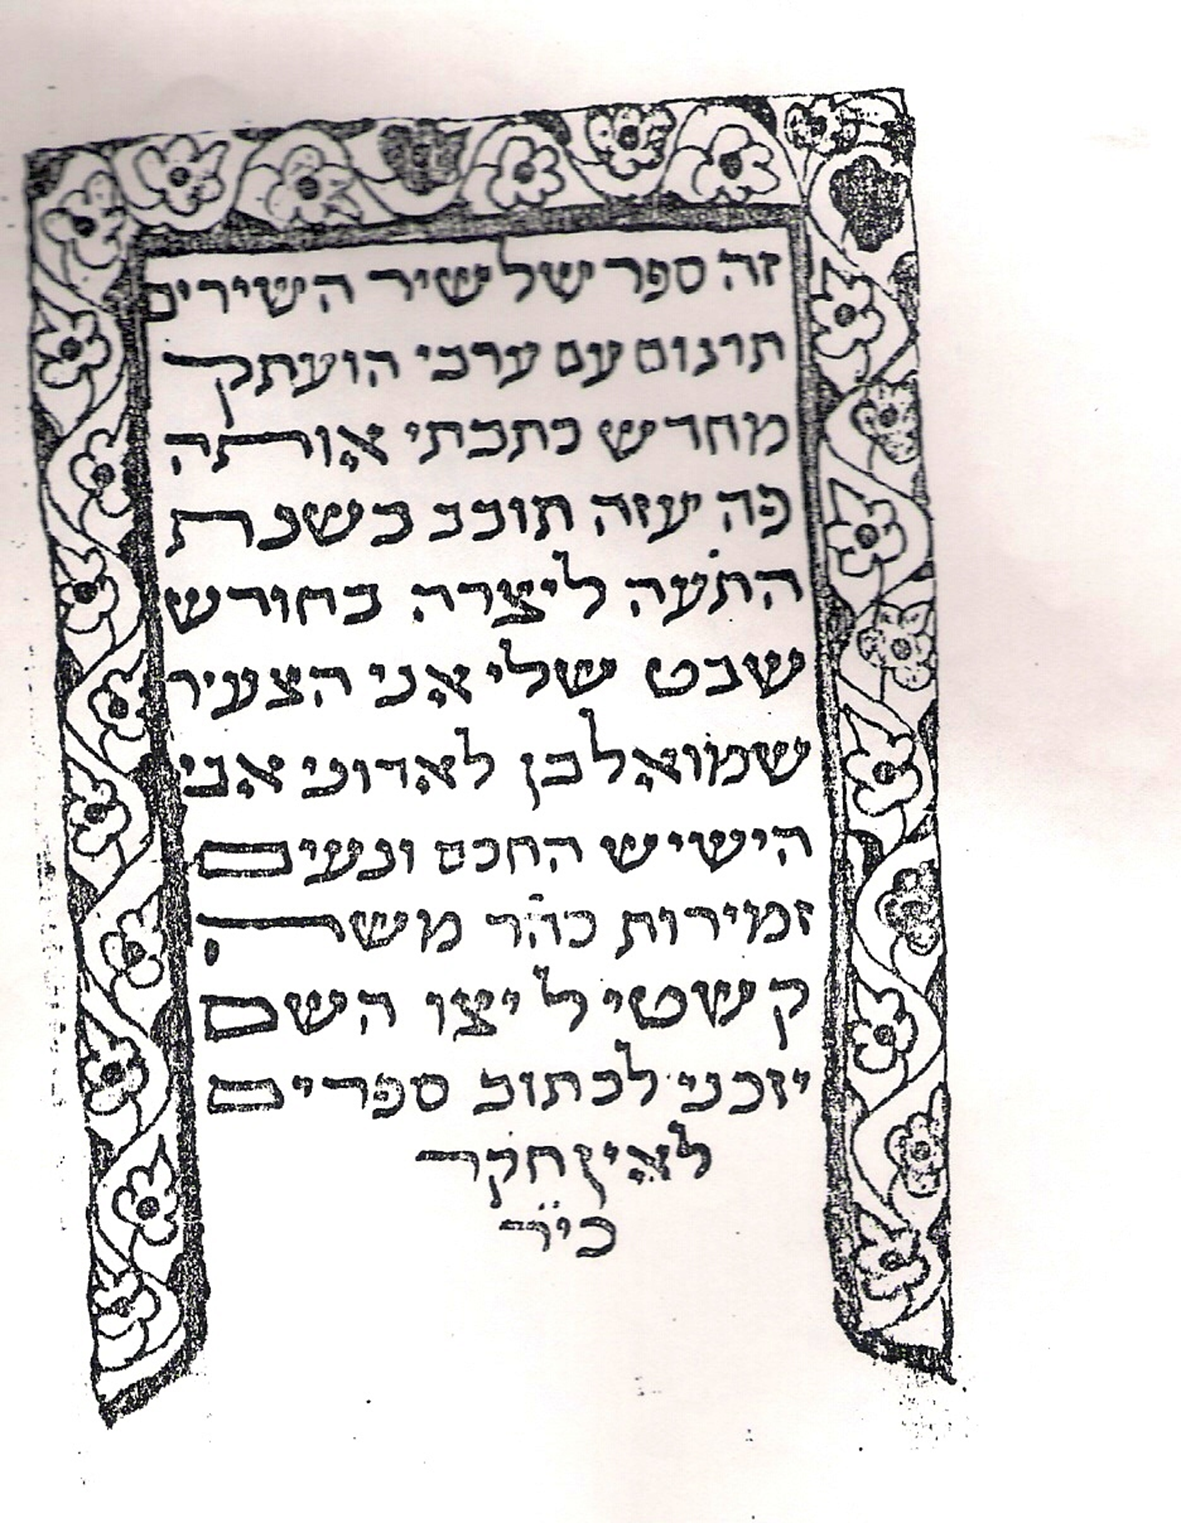 זה ספר של שיר השירים
תרגום עם ערבי הועתק
מחדש כתבתי אותה
פה יעזה תובב בשנת
התעה ליצרה בחורש
שבט שלי אני הצעיר
שמואל בן לאדוני אבי
הישיש החכם ונעים
זמירות כהר משה
קשטי ל יצו השם
יזכני לכתוב ספרים
לאין חקר
כיר